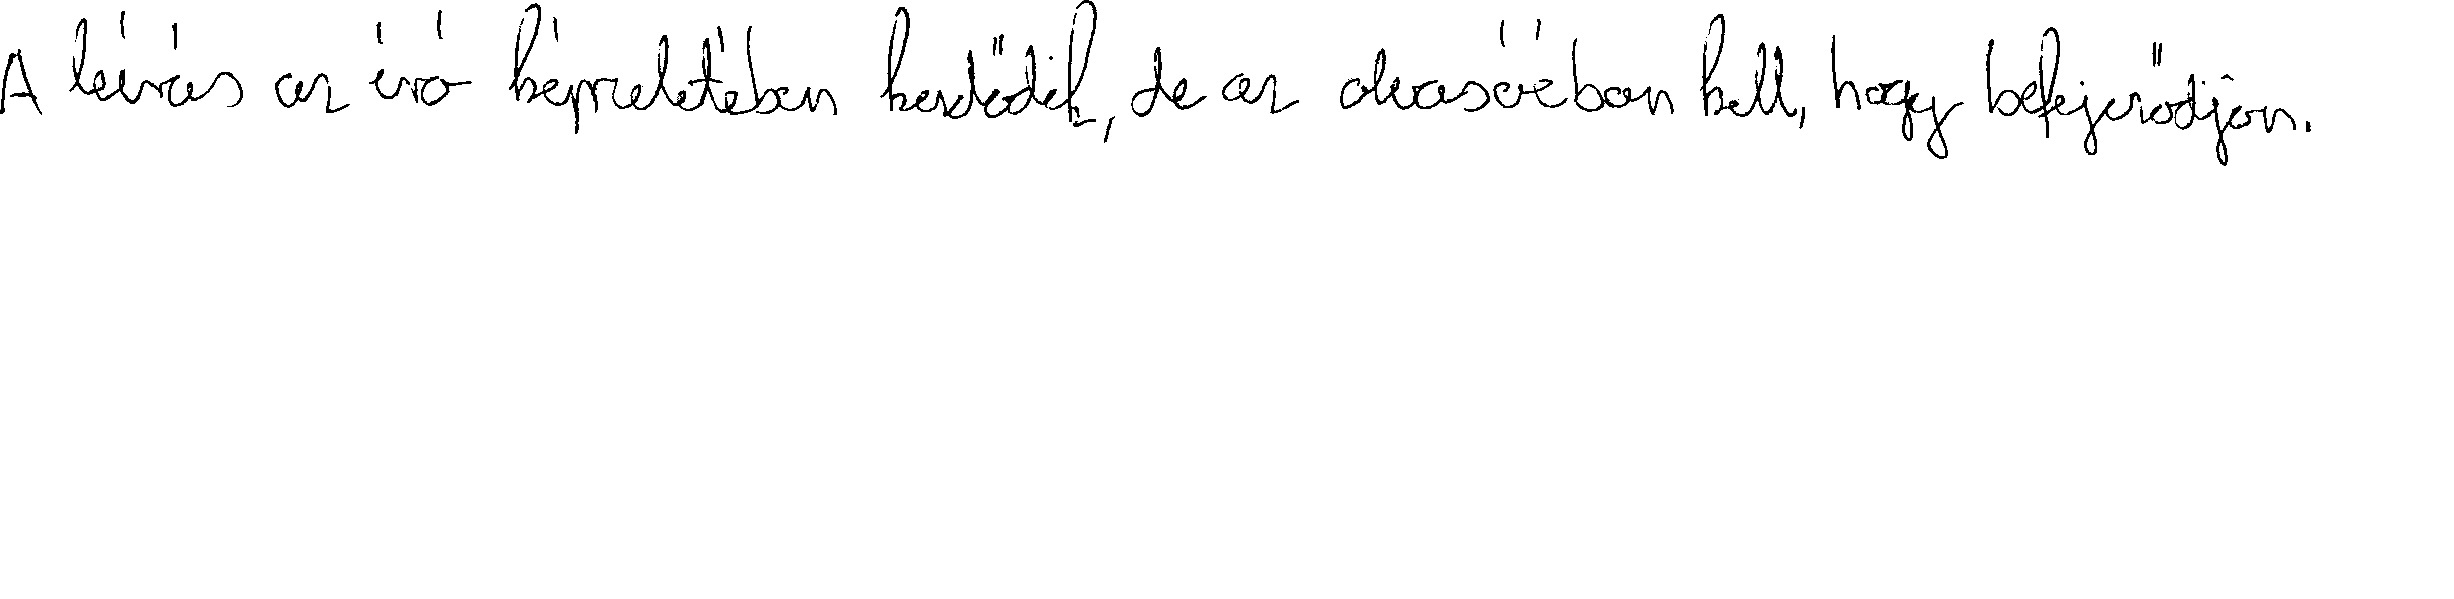 A leírás az író képzeletében kezdődik, de az olvasóéban kell, hogy befejeződjön.